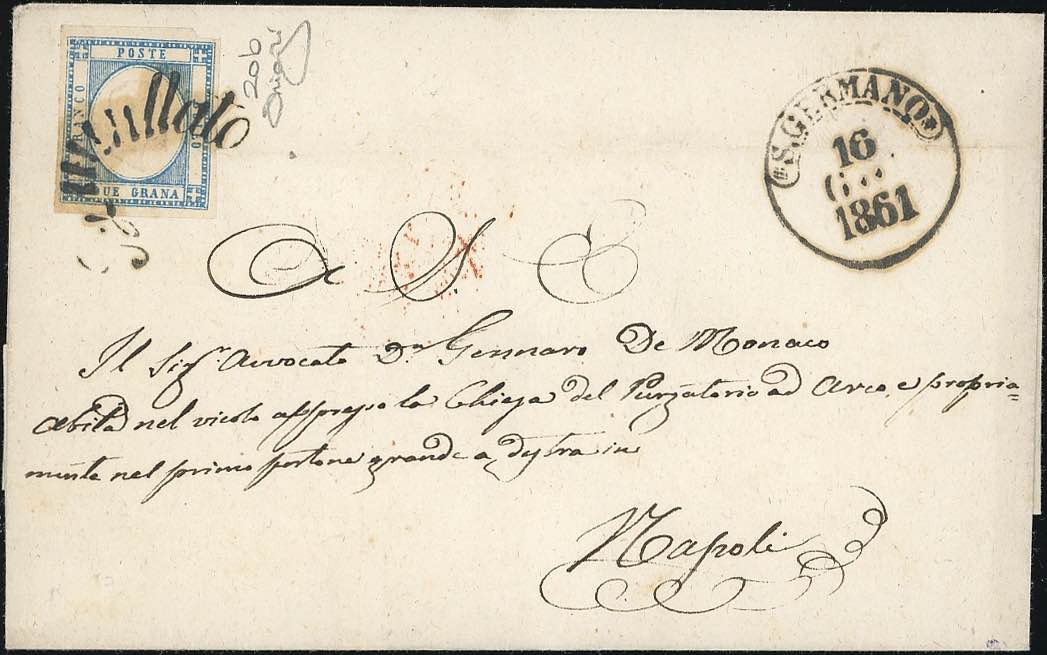 POSTE
FRANCO
BOLLO
DUE GRANA
Annullato
20b
S. GERMANO
16
1861
A S. E
Il Sig.r Avvocato D.n Gennaro De Monaco
abita nel vicolo appresso la Chiesa del Purgatorio ad Arco, e propria=
mente nel primo portone grande a destra in
Napoli